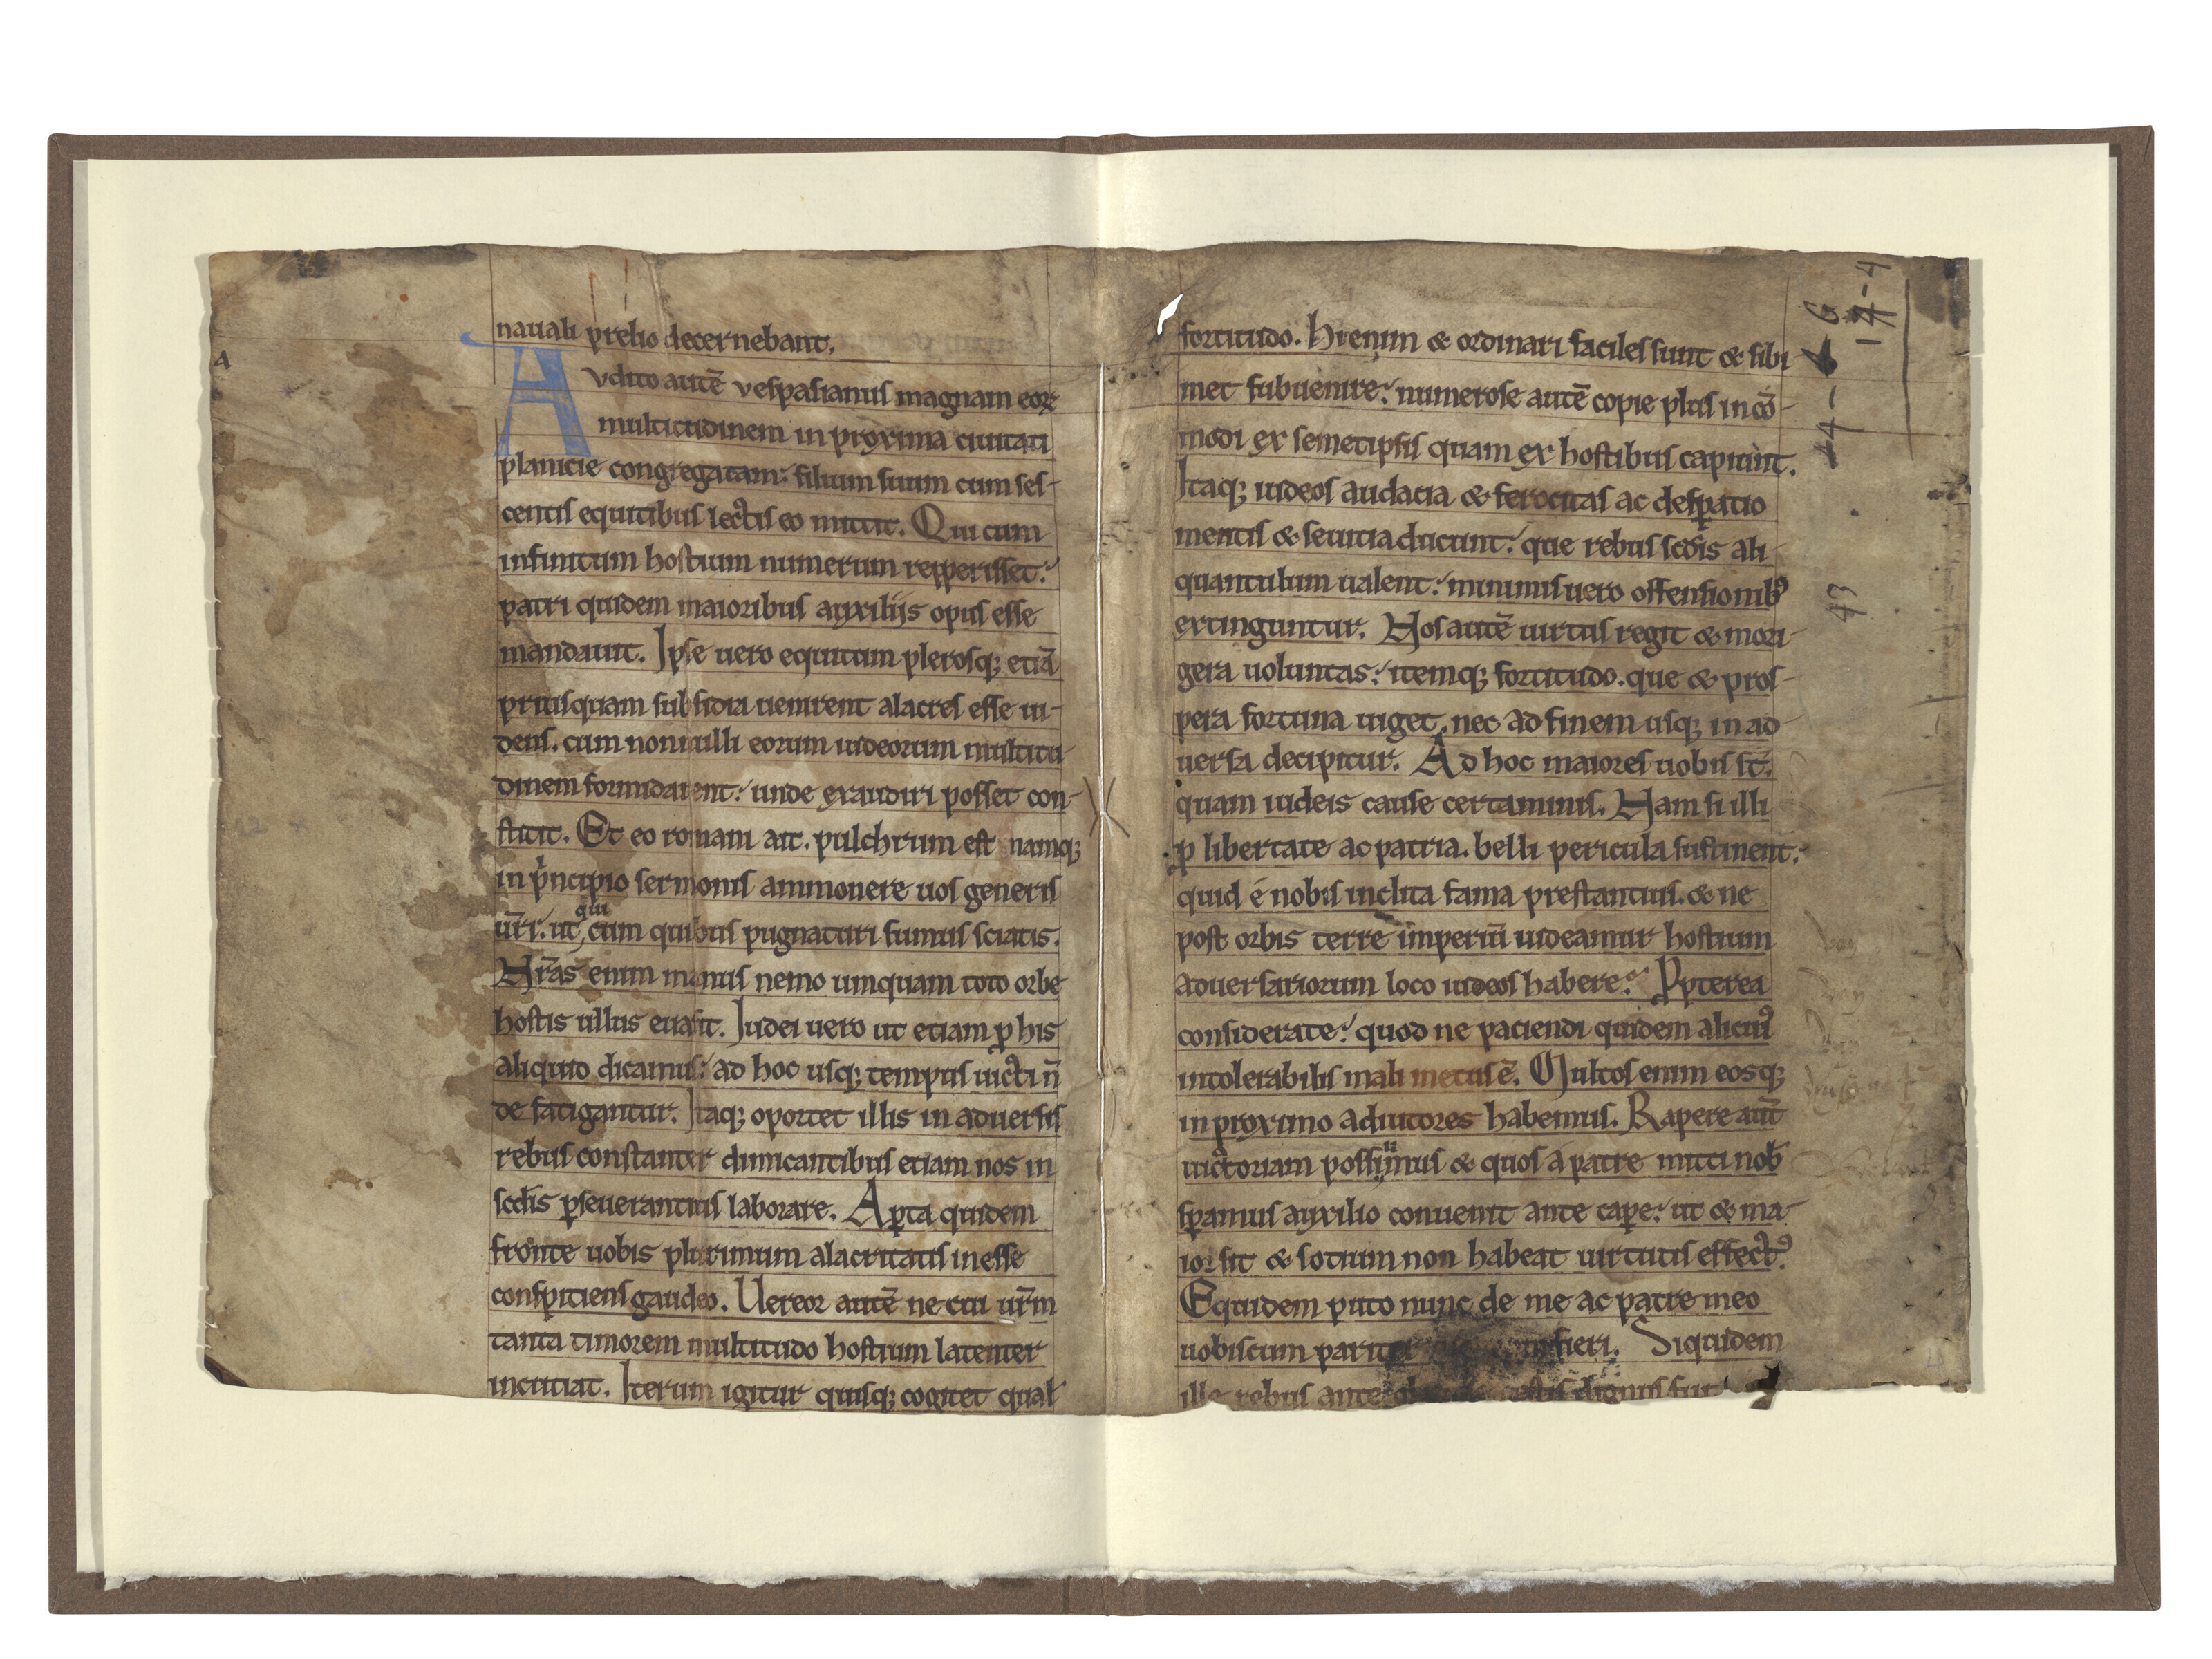 nauali prelio decernebant.
Audito autē vespasianus magnam eoꝝ
multitudinem in proxima ciuitati
planicie congregatam: filium suum cum ses-
centis equitibus lectis eo mittit. Qui cum
infinitum hostium numerum repperisset:
patri quidem maioribus auxiliis opus esse
mandauit. Ipse uero equitum plerosq; etiā
priusquam subsidia uenirent alacres esse ui-
dens. cum nonnulli eorum iudeorum multitu-
dinem formidarent: unde exaudiri posset con-
stitit. Et eo romani ait. pulchrum est namq;
in p'ncipio sermonis ammonere uos generis
ur̄i: ut qui cum quibus pugnaturi sumus sciatis.
Nr̄as enim manus nemo umquam toto orbe
hostis ullus euasit. Iudei uero ut etiam ꝓ his
aliquid dicamus: ad hoc usq; tempus uicti ñ
de fatigantur. Itaq; oportet illis in aduersis
rebus constanter dimicantibus etiam nos in
scd̄is ꝑseuerantius laborare. Aꝑta quidem
fronte uobis plurimum alacritatis inesse
conspitiens gaudeo. Uereor autē ne cui ur̄m
tanta timorem multitudo hostium latenter
incutiat. Iterum igitur quisq; cogitet qual
fortitudo. Hi enim & ordinari faciles sunt & sibi
met subuenire: numerose autē copie plus incō-
modi ex semetipsis quam ex hostibus capiunt.
Itaq; iudeos audacia & ferocitas ac desꝑatio
mentis & seuitia ducunt: que rebus scd̄is ali-
quantulum ualent: minimis uero offensionibꝰ
extinguntur. Nos autē uirtus regit & mori-
gera uoluntas: itemq; fortitudo. que & pros-
pera fortuna uiget. nec ad finem usq; in ad
uersa decipitur. Ad hoc maiores uobis st̄.
quam iudeis cause certaminis. Nam si illi
ꝓ libertate ac patria. belli pericula sustinent:
quid ē nobis inclita fama prestantius. & ne
post orbis terre imperiū uideamur hostium
aduersariorum loco iudeos habere: Ppterea
considerate: quod ne paciendi quidem alicuiꝰ
intolerabilis mali metus ē. Multos enim eosq;
in proximo adiutores habemus. Rapere aut̄
uictoriam possumus & quos a patre mitti nob̄
sꝑamus auxilio conuenit ante caꝑe: ut & ma-
ior sit & sotium non habeat uirtutis effectꝰ
Equidem puto nunc de me ac patre meo
uobiscum pariter fieri. Siquidem
ille rebus ante dignus fuit